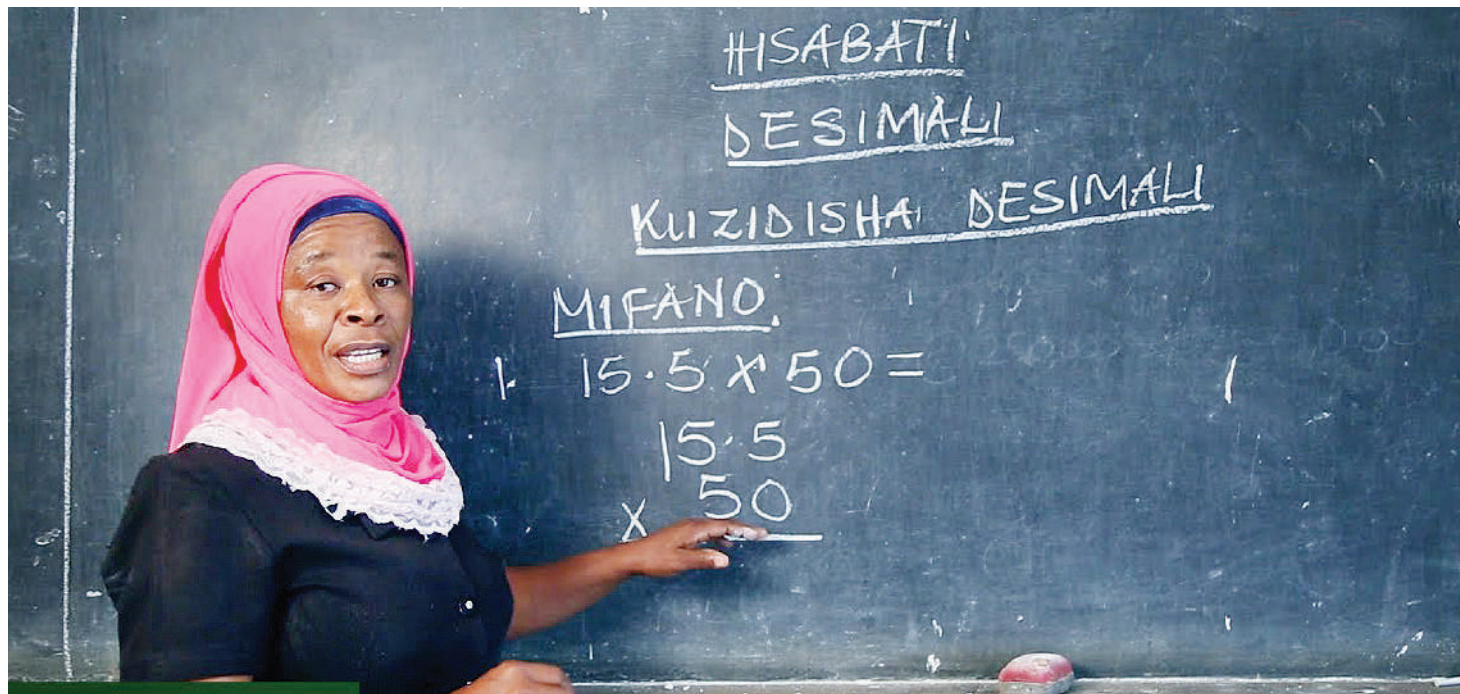 HISABATI
DESIMALI
KUZIDISHA DESIMALI
MIFANO:
1. 15.5 x 50 =
15.5
x 50